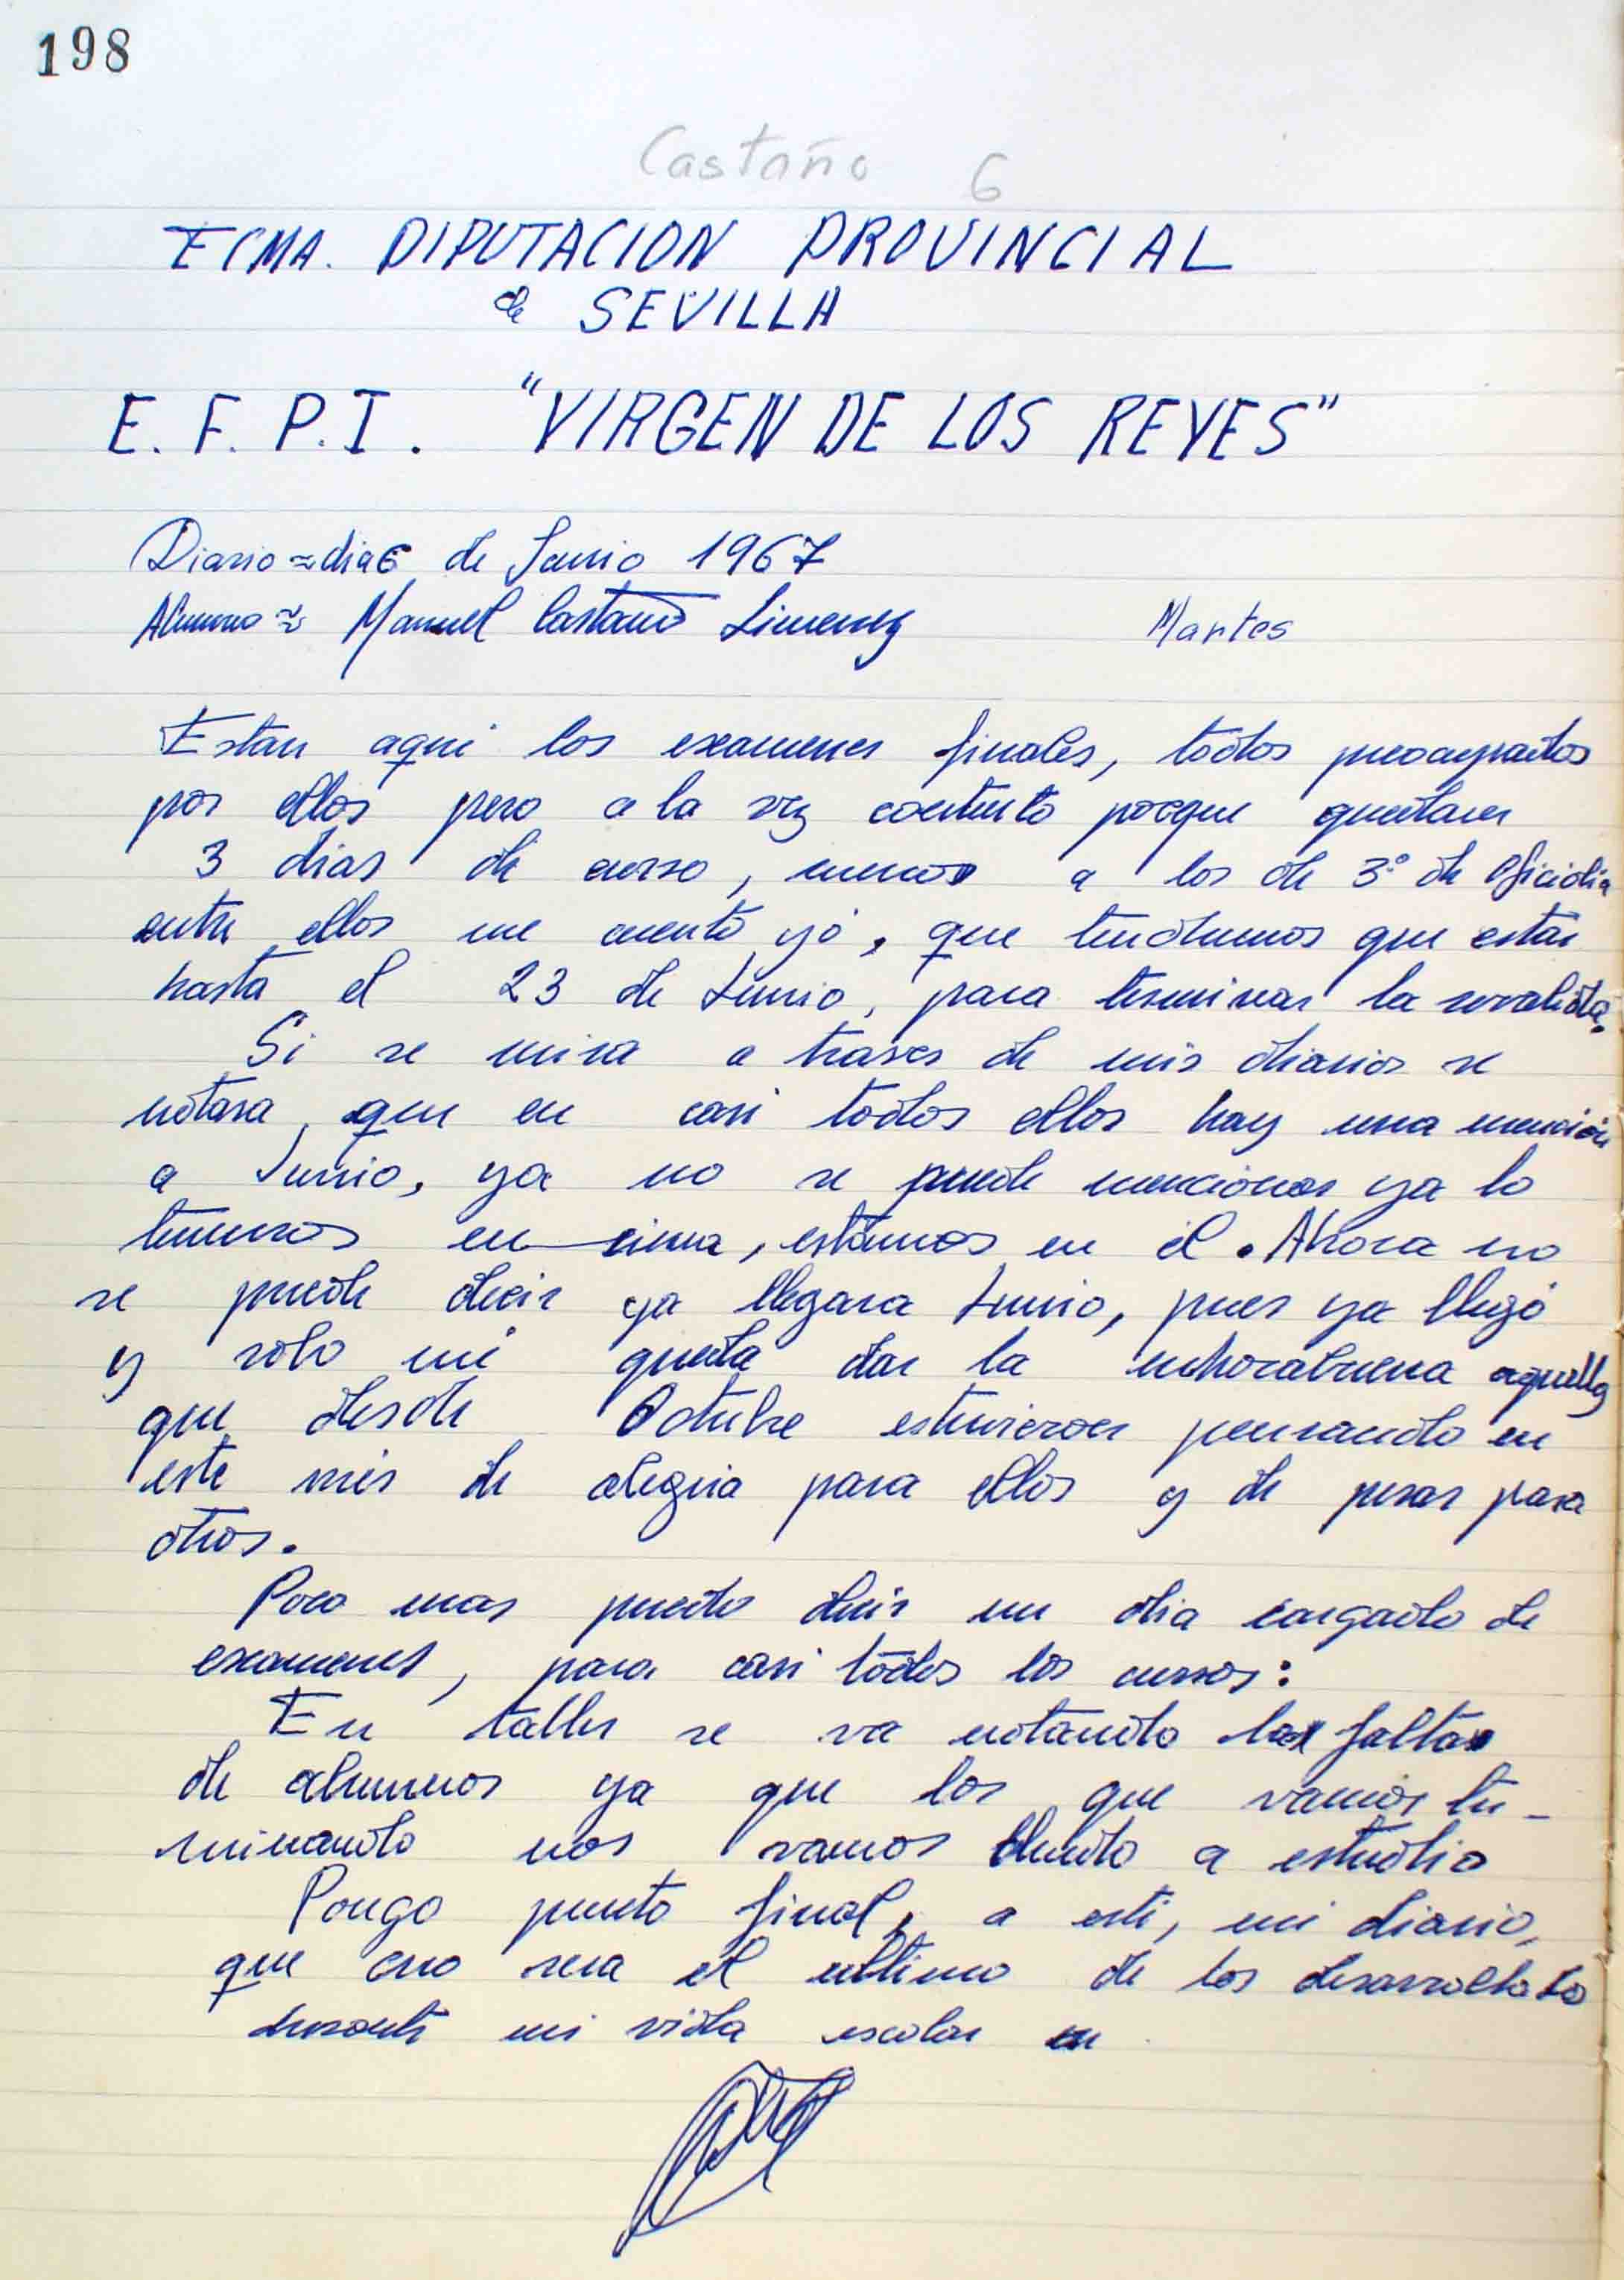 198
Castaño 6
ECMA. DIPUTACION PROVINCIAL
de SEVILLA
E. F. P. I. "VIRGEN DE LOS REYES"
Diario = dia 6 de Junio 1967
Alumno = Manuel Castaño Jimenez Martes
Estan aqui los examenes finales, todos preocupados
por ellos pero a la vez contento porque quedan
3 dias de curso, menos a los de 3º de Oficialia
entre ellos me cuento yo, que tendremos que estar
hasta el 23 de Junio, para terminar la revalida.
Si se mira a traves de mis diarios se
notara, que en casi todos ellos hay una mención
a Junio, ya no se puede mencionar ya lo
tenemos en cima, estamos en el. Ahora no
se puede decir ya llegara Junio, pues ya llegó
y solo mi queda dar la enhorabuena aquellos
que desde Octubre estuvieron pensando en
este mes de alegria para ellos y de pesar para
otros.
Poco mas puedo decir un dia cargado de
examenes, para casi todos los cursos:
En taller se va notando la falta
de alumnos ya que los que vamos ter-
minando nos vamos a estudio
Pongo punto final, a este, mi diario,
que creo sera el ultimo de los desarrollado
durante mi vida escolar en